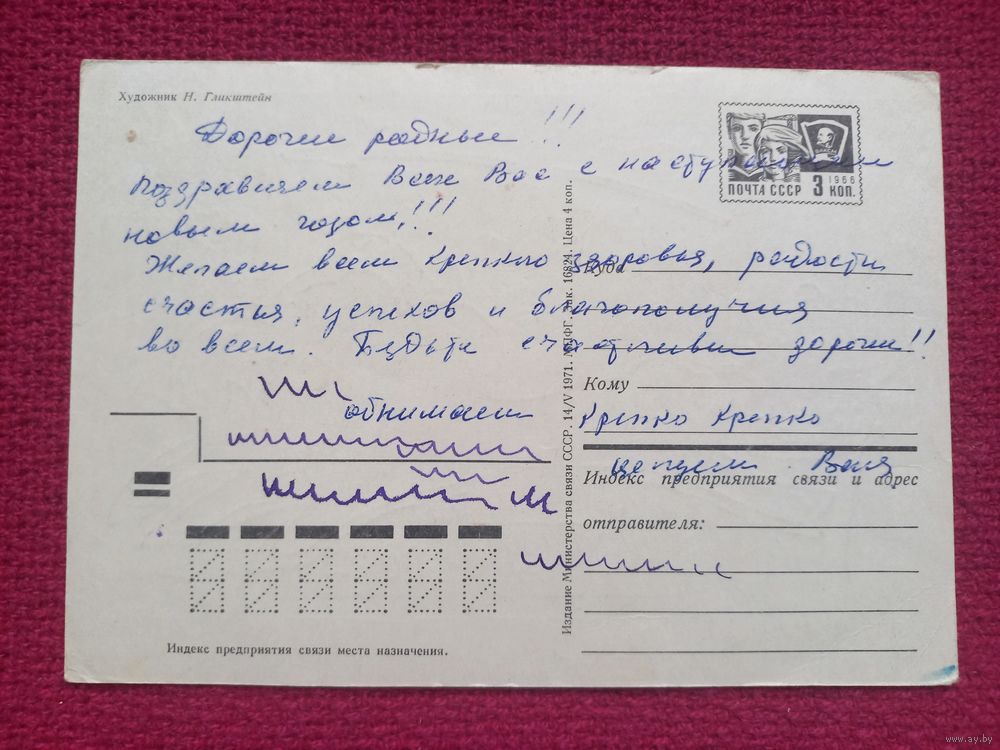 Художник Н. Гликштейн
Дорогие родные!!!
Поздравляем Всех Вас с наступающим
новым годом!!!
Желаем всем крепкого здоровья, радости
счастья, успехов и благополучия
во всем. Будьте счастливы дорогие!!
обнимаем Крепко Крепко
целуем Ваня
ПОЧТА СССР 3 КОП.
1966
ВЛКСМ
Куда
Кому
Индекс предприятия связи и адрес
отправителя:
Издание Министерства связи СССР. 14/V 1971. Зак. 16824. Цена 4 коп.
Индекс предприятия связи места назначения.
www.ay.by